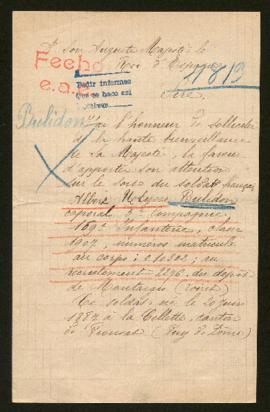 A Son Auguste Majesté le
Roi d'Espagne
Fecho
e.a.
Pedir informes
Que se hace así
21813
Sire,
Pulidon
J'ai l'honneur de solliciter
de la haute bienveillance
de Sa Majesté, la faveur
d'apporter son attention
sur le sort du soldat français
Albert Pulidon
caporal 5e Compagnie
169e Infanterie, classe
1907, numéros matricule
au corps: 010202; au
recrutement 2296, du dépôt
de Montargis (Loiret)
Ce soldat né le 20 juin
1887 à la Cellette, canton
de Pionsat (Puy de Dôme)